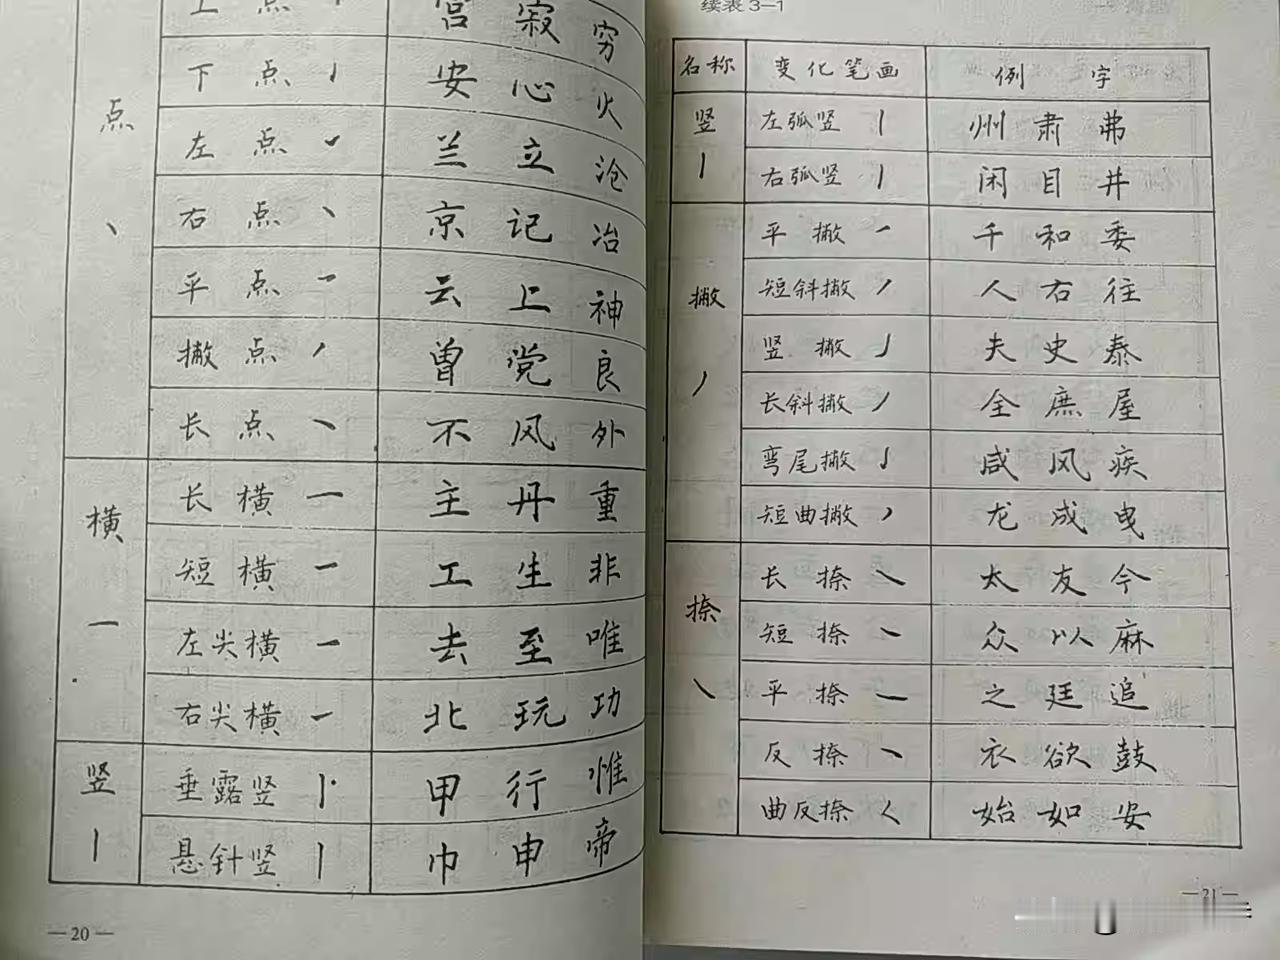 点 宫 寂 穷
下 点 安 心 火
点 左 点 兰 立 沧
右 点 京 记 冶
丶 平 点 云 上 神
撇 点 曾 党 良
长 点 不 风 外
横 长 横 主 丹 重
短 横 工 生 非
一 左尖横 去 至 唯
右尖横 北 玩 功
竖 垂露竖 甲 行 惟
丨 悬针竖 巾 申 帝
— 20 —
续表3—1
名称 变化笔画 例 字
竖 左弧竖 州 肃 弗
丨 右弧竖 闲 目 井
平 撇 千 和 委
撇 短斜撇 人 右 往
竖 撇 夫 史 泰
丿 长斜撇 全 庶 屋
弯尾撇 咸 风 疾
短曲撇 龙 成 曳
长 捺 太 友 今
捺 短 捺 众 以 麻
㇏ 平 捺 之 廷 追
反 捺 衣 欲 鼓
曲反捺 始 如 安
— 21 —